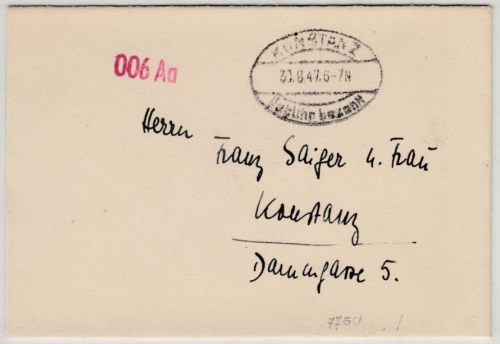 006 Aa
KONSTANZ
30.8.47.6-7N
Gebühr bezahlt
Herrn
Franz Saiger u. Frau
Konstanz
Dammgasse 5.